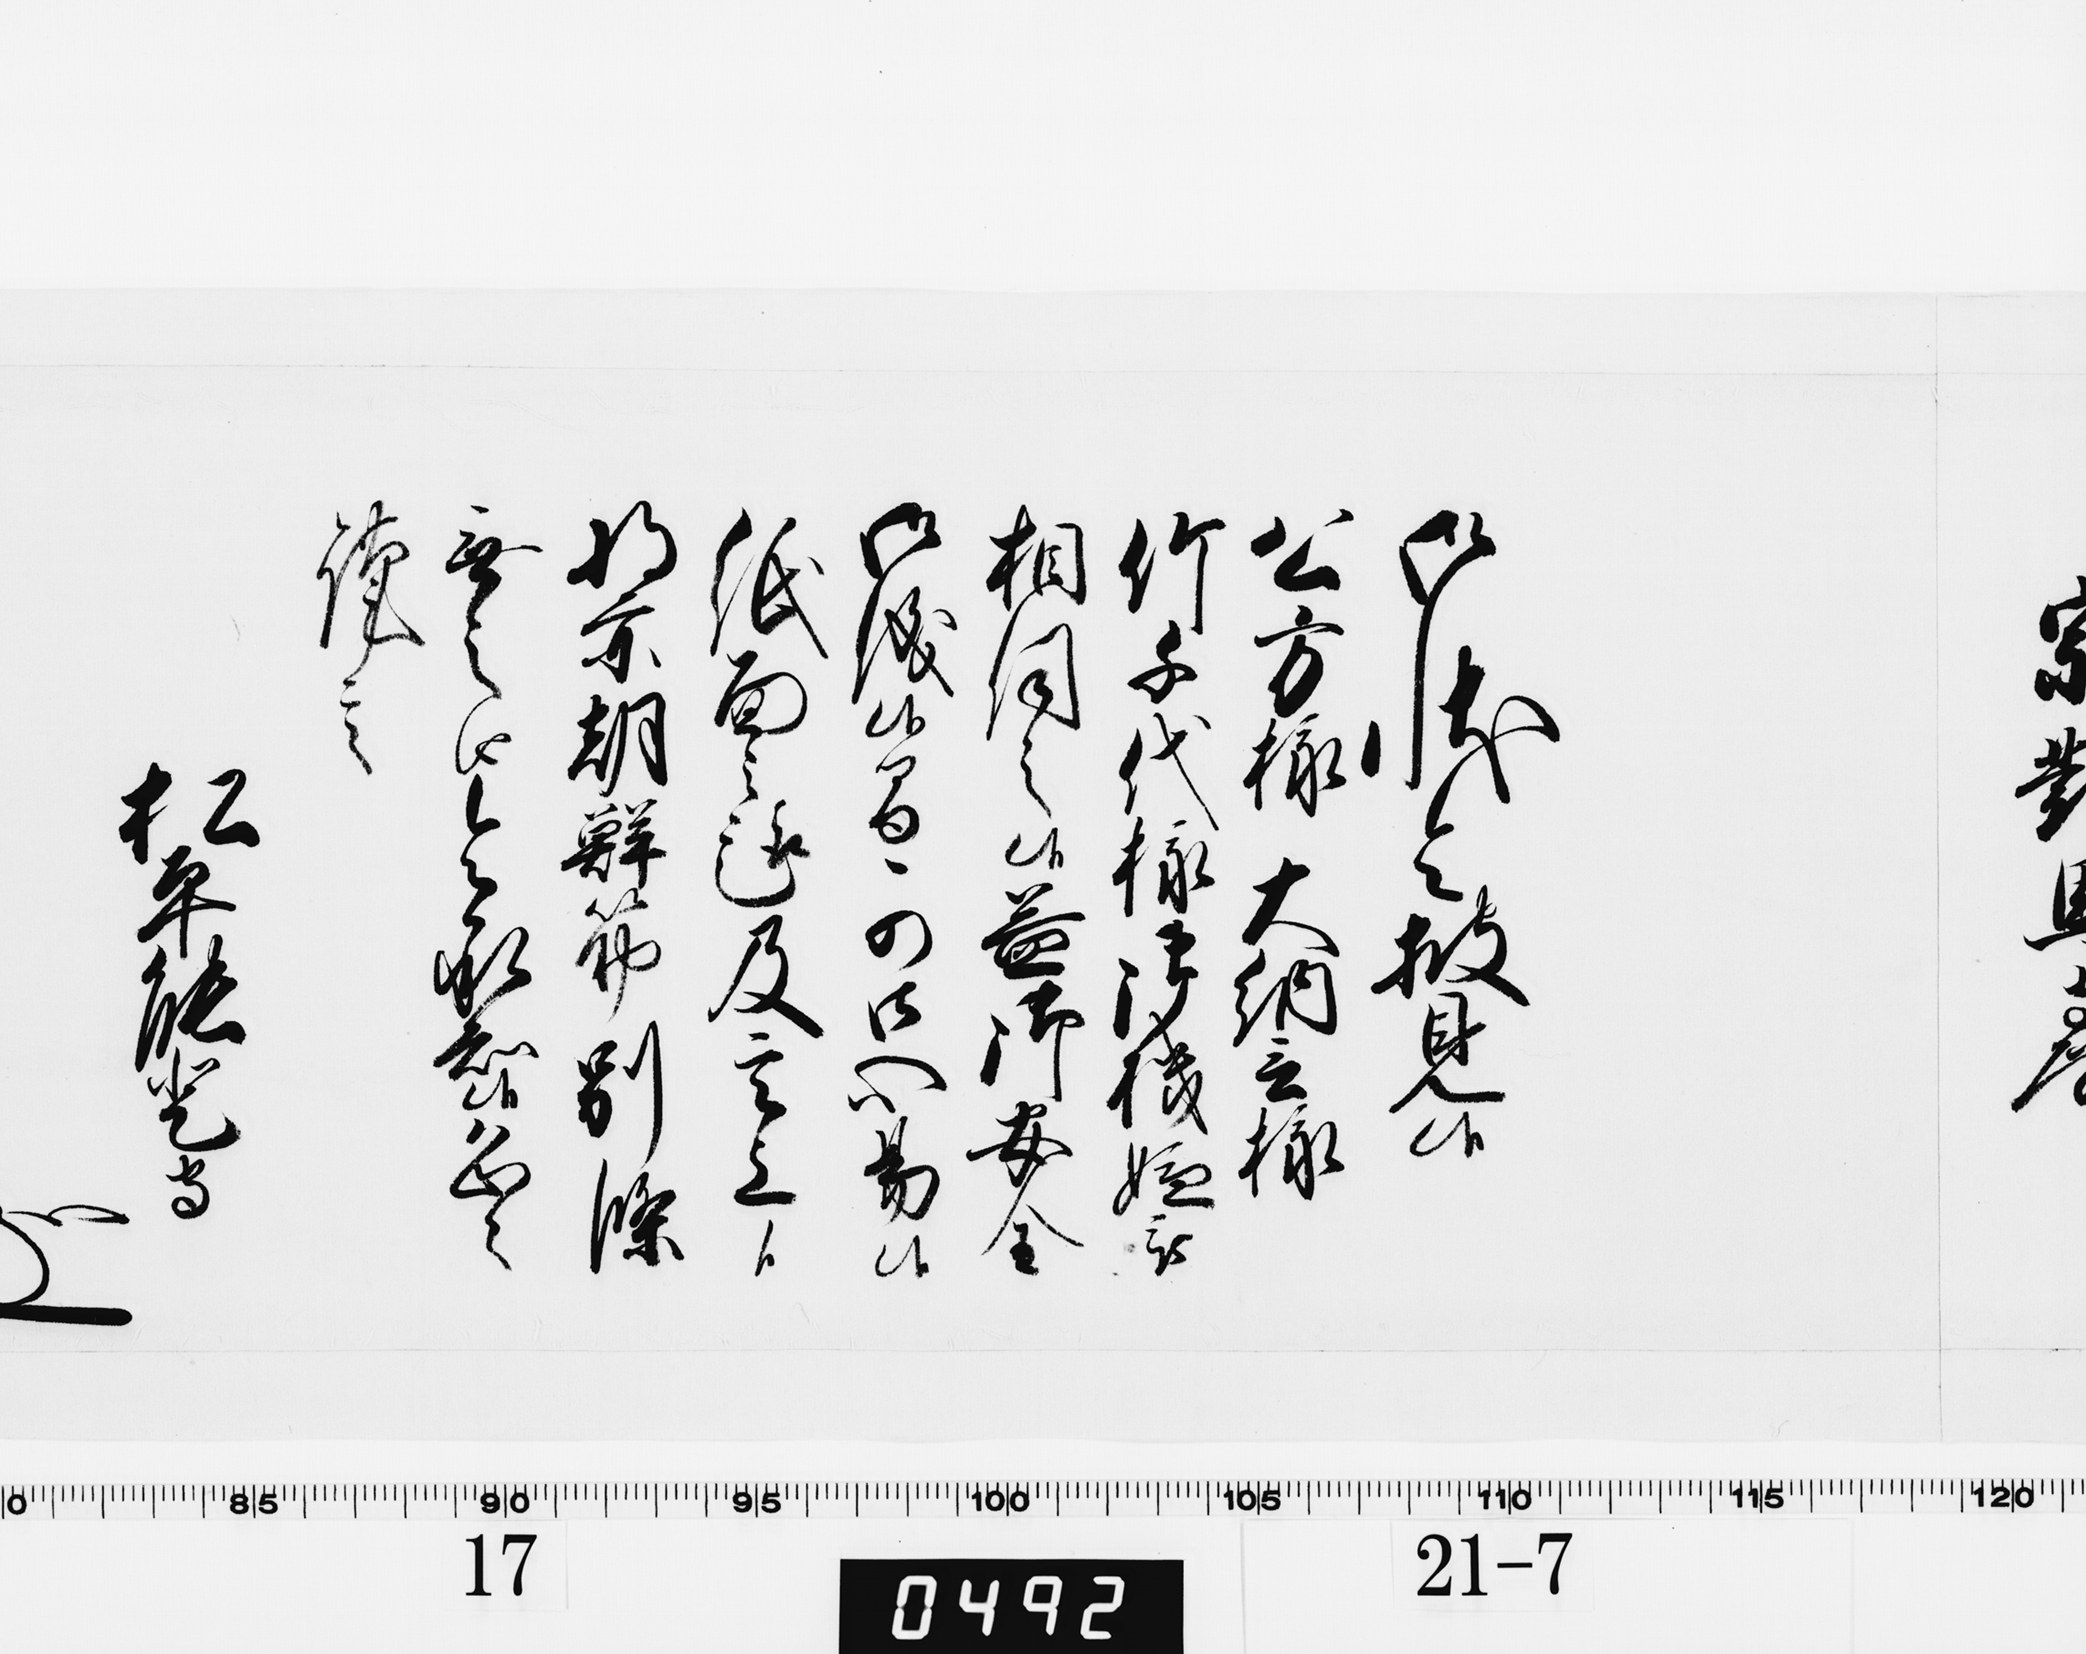 宗對馬守
御状令披見候
公方様 大納言様
竹千代様御機嫌被
相伺之候益御安全
御儀候間可御心易候
紙面之趣及言上候
将亦朝鮮筋別條
無之由令承知候恐々
謹言
松平能登守
0 85 90 95 100 105 110 115 120
17
21-7
0492